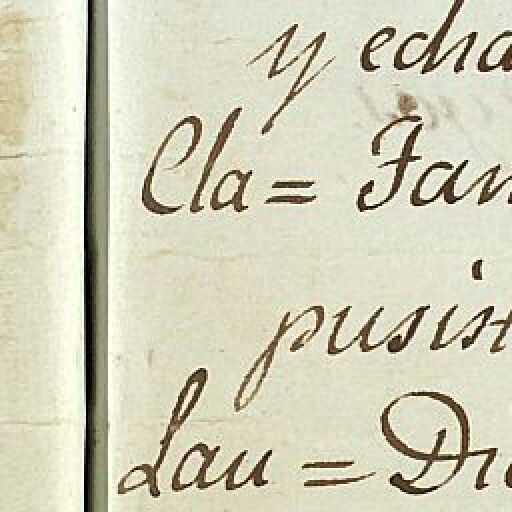 y echa
Cla= Fan
pusist
Lau = Die